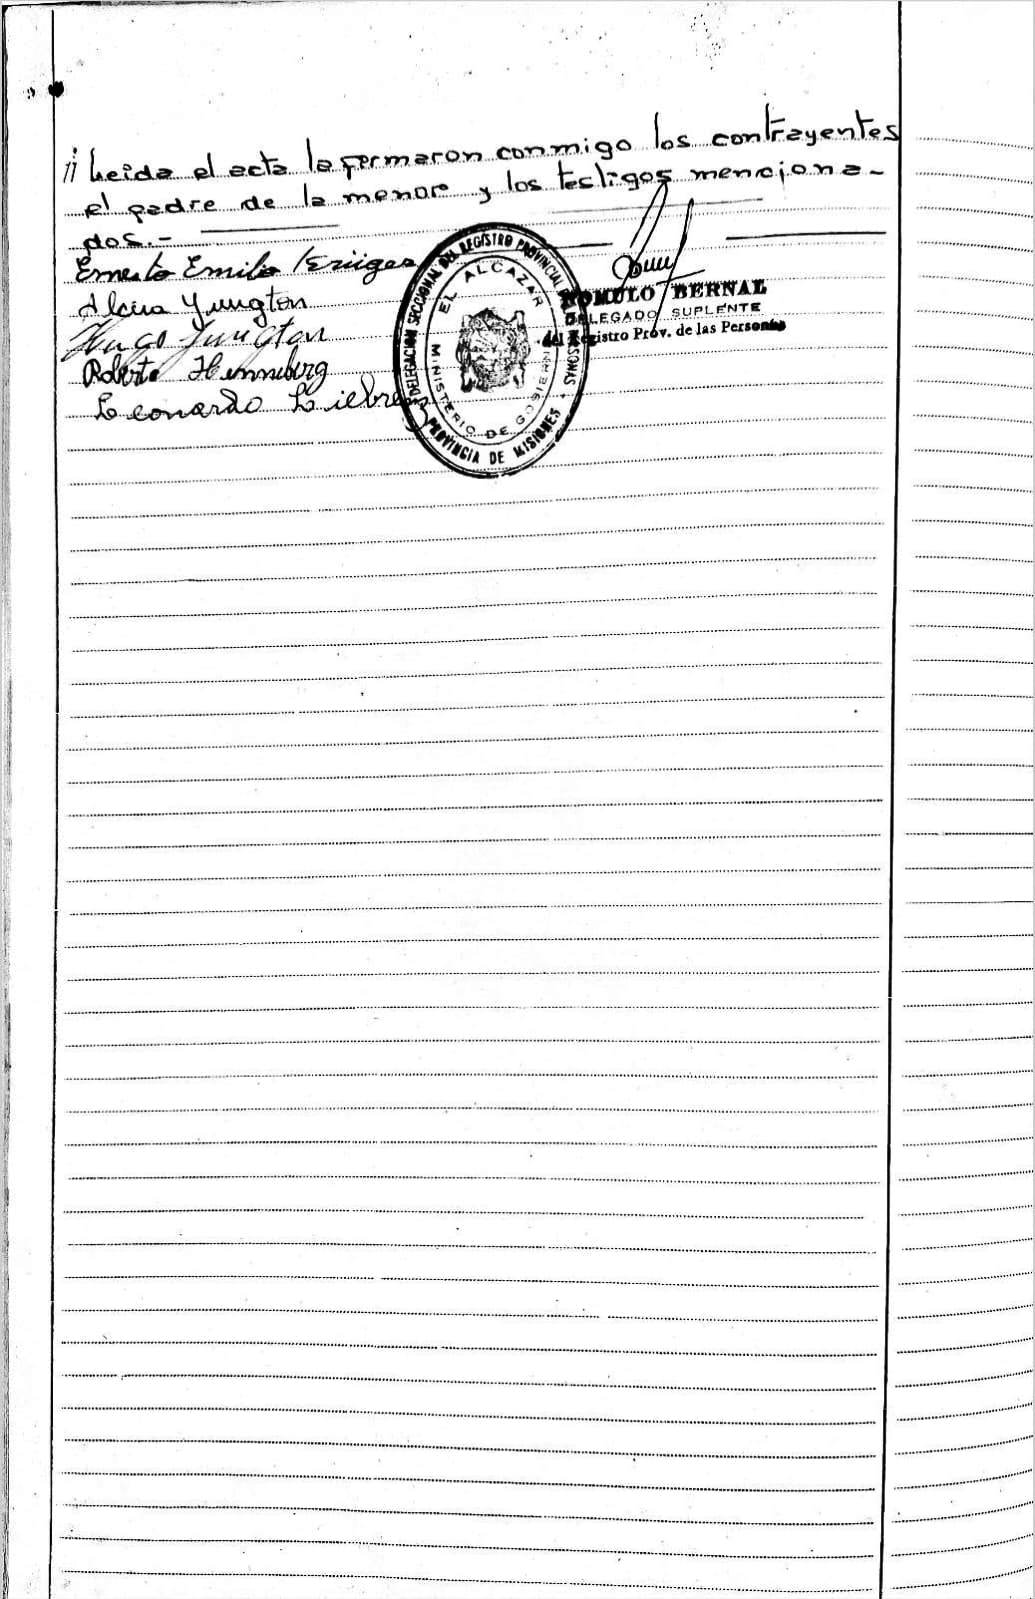 // Leida el acta la firmaron conmigo los contrayentes
el padre de la menor y los testigos menciona-
dos.-
Ernesto Emilo Krüger
Alcira Yungton
Hugo Jungton
Roberto Henneberg
Leonardo Liebrenz
DELEGACION SECCIONAL DEL REGISTRO PROVINCIAL PERSONAS
EL ALCAZAR
MINISTERIO DE GOBIERNO
PROVINCIA DE MISIONES
ROMULO BERNAL
DELEGADO SUPLENTE
del Registro Prov. de las Personas